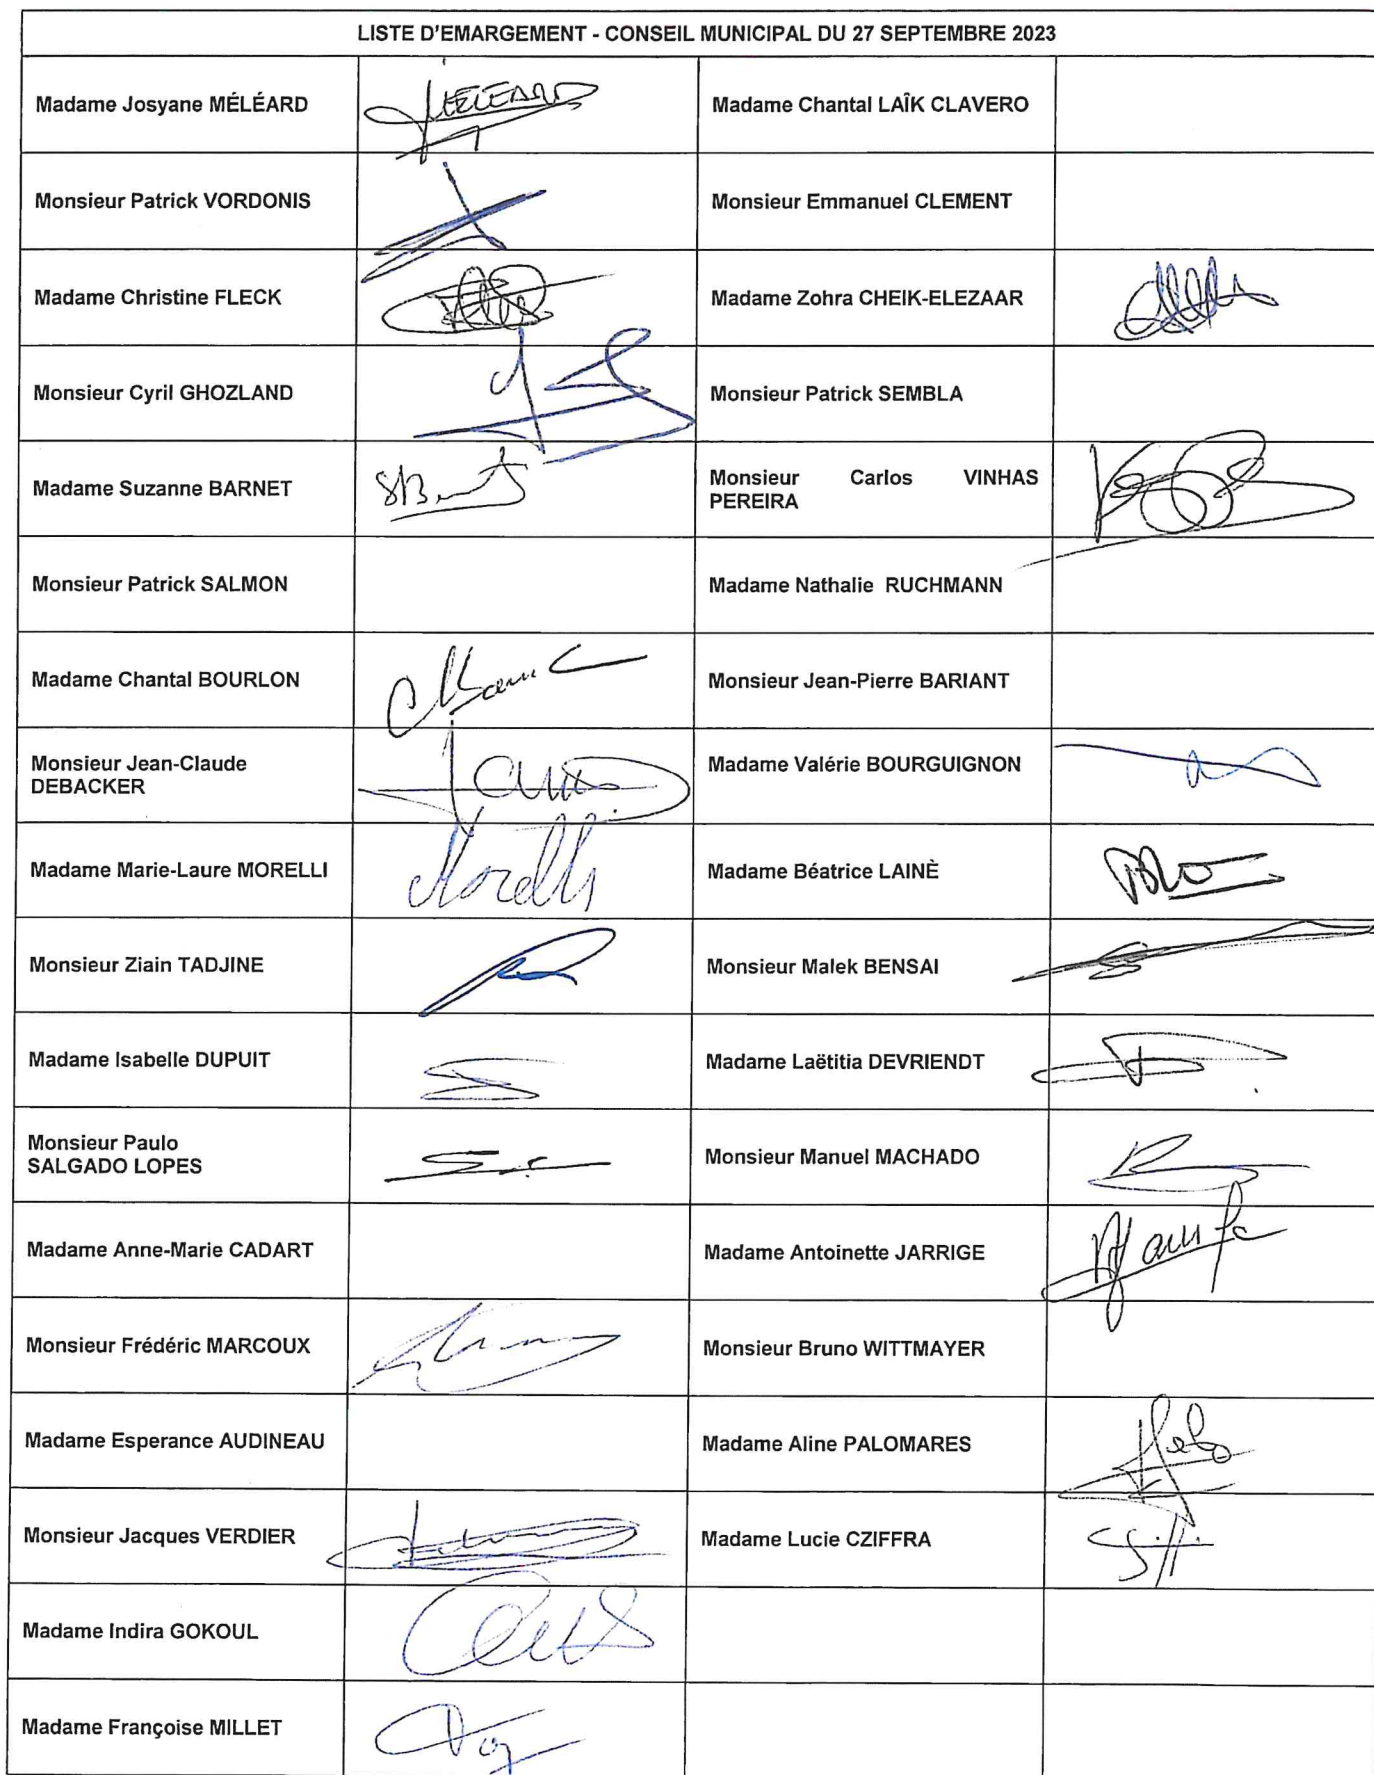 LISTE D'EMARGEMENT - CONSEIL MUNICIPAL DU 27 SEPTEMBRE 2023
Madame Josyane MÉLÉARD
MELEARD
Madame Chantal LAÎK CLAVERO
Monsieur Patrick VORDONIS
Monsieur Emmanuel CLEMENT
Madame Christine FLECK
Madame Zohra CHEIK-ELEZAAR
Monsieur Cyril GHOZLAND
Monsieur Patrick SEMBLA
Madame Suzanne BARNET
Monsieur Carlos VINHAS
PEREIRA
Monsieur Patrick SALMON
Madame Nathalie RUCHMANN
Madame Chantal BOURLON
Monsieur Jean-Pierre BARIANT
Monsieur Jean-Claude
DEBACKER
Madame Valérie BOURGUIGNON
Madame Marie-Laure MORELLI
Morelli
Madame Béatrice LAINÈ
Monsieur Ziain TADJINE
Monsieur Malek BENSAI
Madame Isabelle DUPUIT
Madame Laëtitia DEVRIENDT
Monsieur Paulo
SALGADO LOPES
Monsieur Manuel MACHADO
Madame Anne-Marie CADART
Madame Antoinette JARRIGE
Monsieur Frédéric MARCOUX
Monsieur Bruno WITTMAYER
Madame Esperance AUDINEAU
Madame Aline PALOMARES
Monsieur Jacques VERDIER
Madame Lucie CZIFFRA
Madame Indira GOKOUL
Madame Françoise MILLET